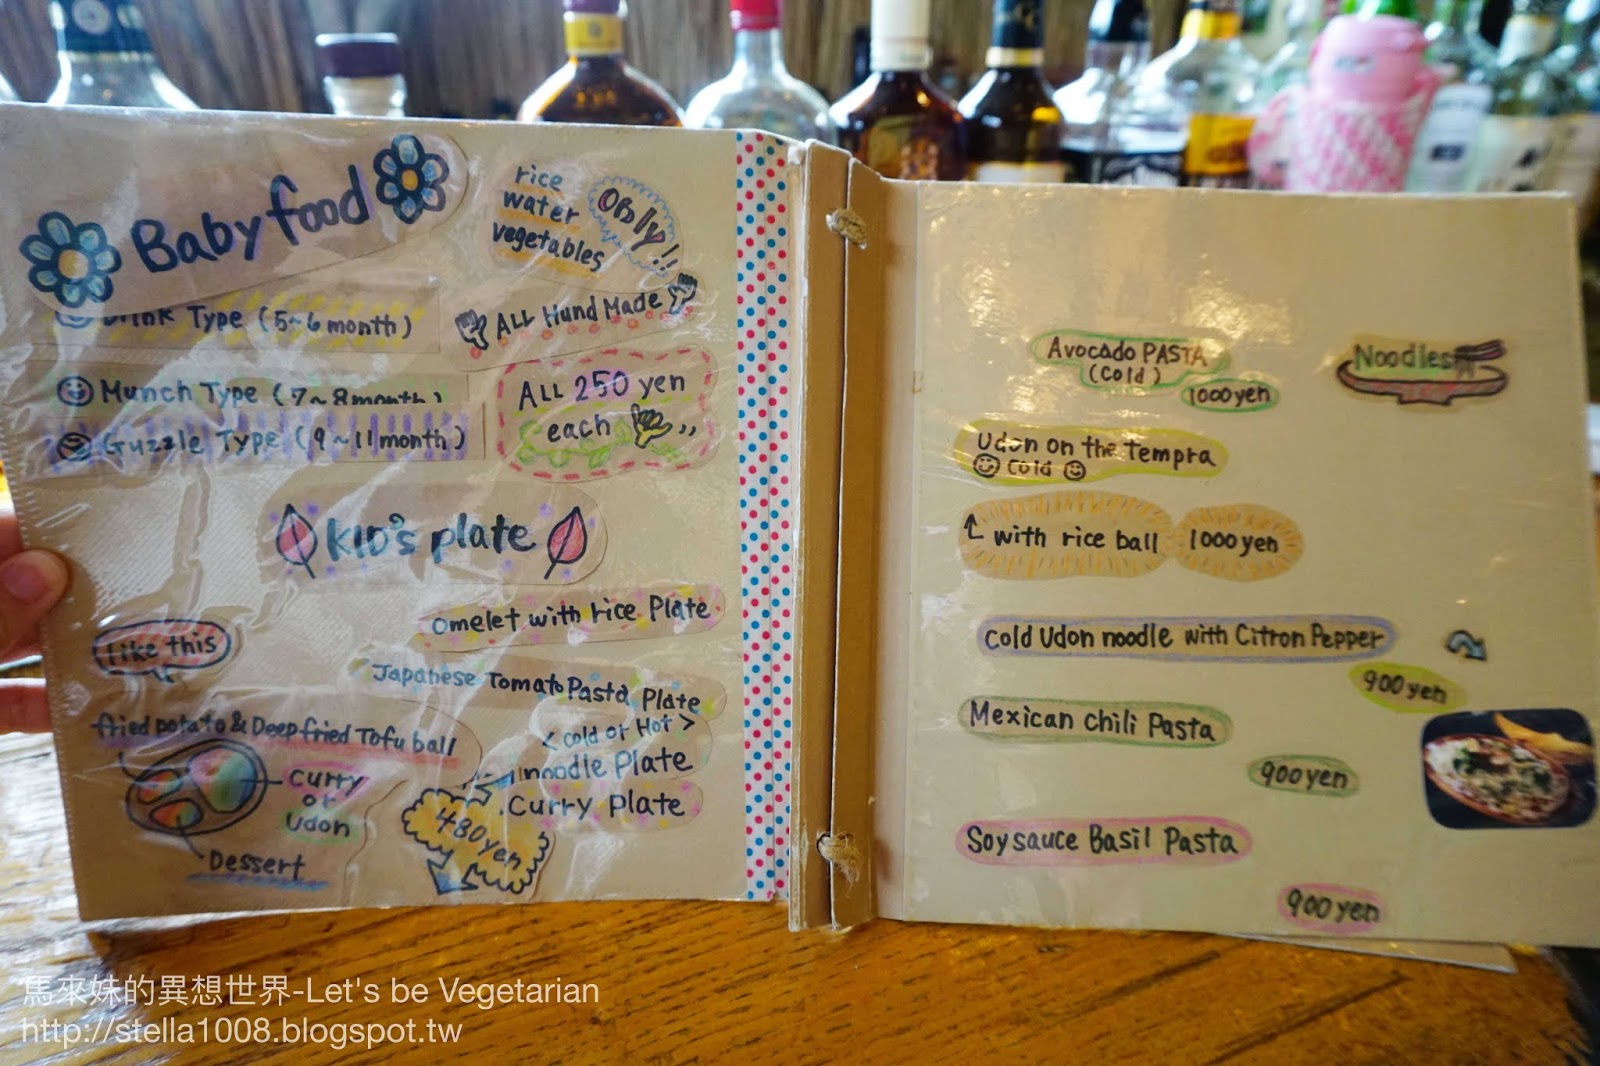 Baby food
rice
water
vegetables
Only!!
Drink Type (5~6 month)
ALL Hund Made
Munch Type (7~8 month)
Guzzle Type (9~11 month)
ALL 250 yen
each
KID's plate
omelet with rice Plate
like this
Japanese Tomato Pasta Plate
<Cold or Hot>
fried potato & Deep fried Tofu ball
noodle Plate
Curry
or
Udon
Curry Plate
480yen
Dessert
Avocado PASTA
(Cold)
1000yen
Noodles
Udon on the Tempra
Cold
with rice ball 1000yen
Cold Udon noodle with Citron Pepper
900yen
Mexican Chili Pasta
900yen
Soysauce Basil Pasta
900yen
馬來妹的異想世界-Let's be Vegetarian
http://stella1008.blogspot.tw